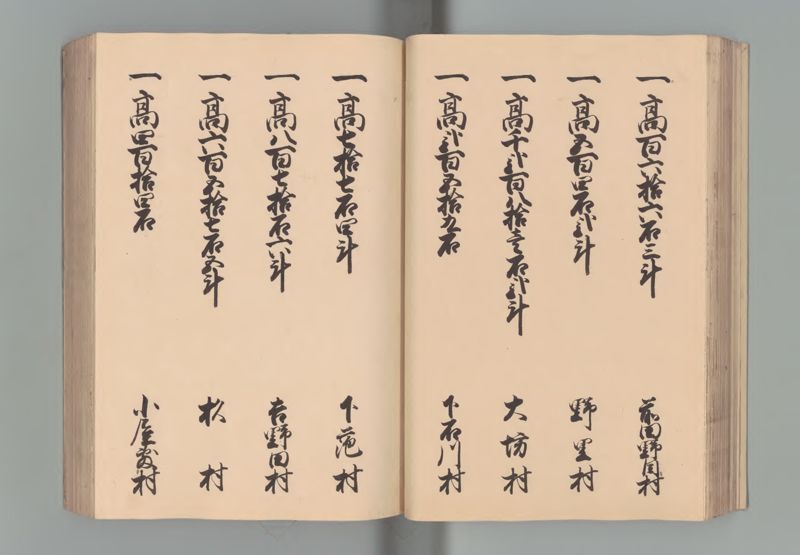 一高百六拾六石三斗 前田野目村
一高五百四石弐斗 野里村
一高千弐百八拾壱石弐斗 大坊村
一高弐百五拾五石 下石川村
一高七拾七石四斗 下萢村
一高八百七拾石六斗 吉野田村
一高六百五拾七石五斗 杉村
一高四百拾四石 小屋敷村